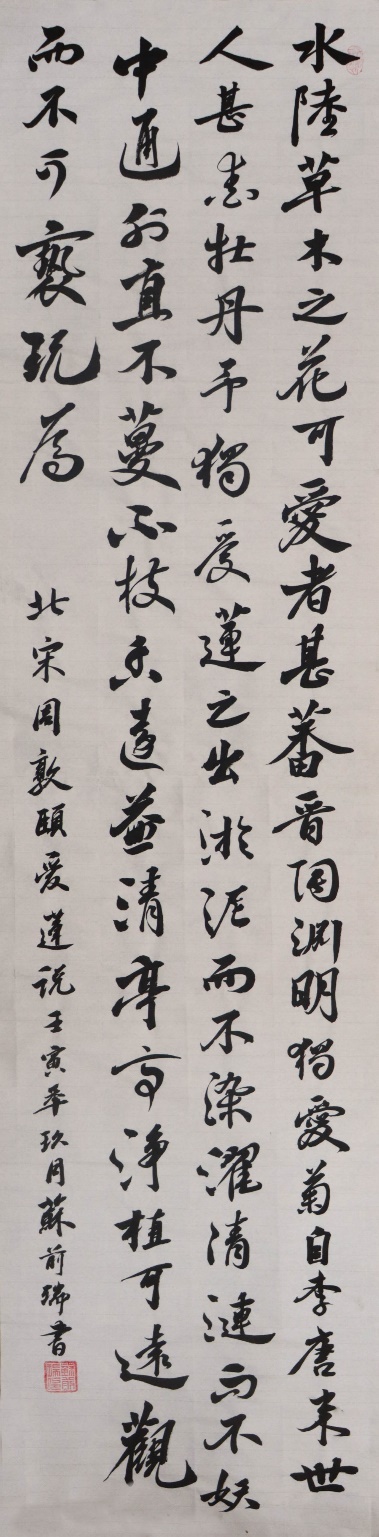 水陸草木之花可愛者甚蕃晋陶渊明獨愛菊自李唐来世
人甚愛牡丹予獨愛蓮之出淤泥而不染濯清漣而不妖
中通外直不蔓不枝香遠益清亭亭淨植可遠觀
而不可褻玩焉
北宋周敦頤愛蓮説壬寅年玖月蘇前瑞書